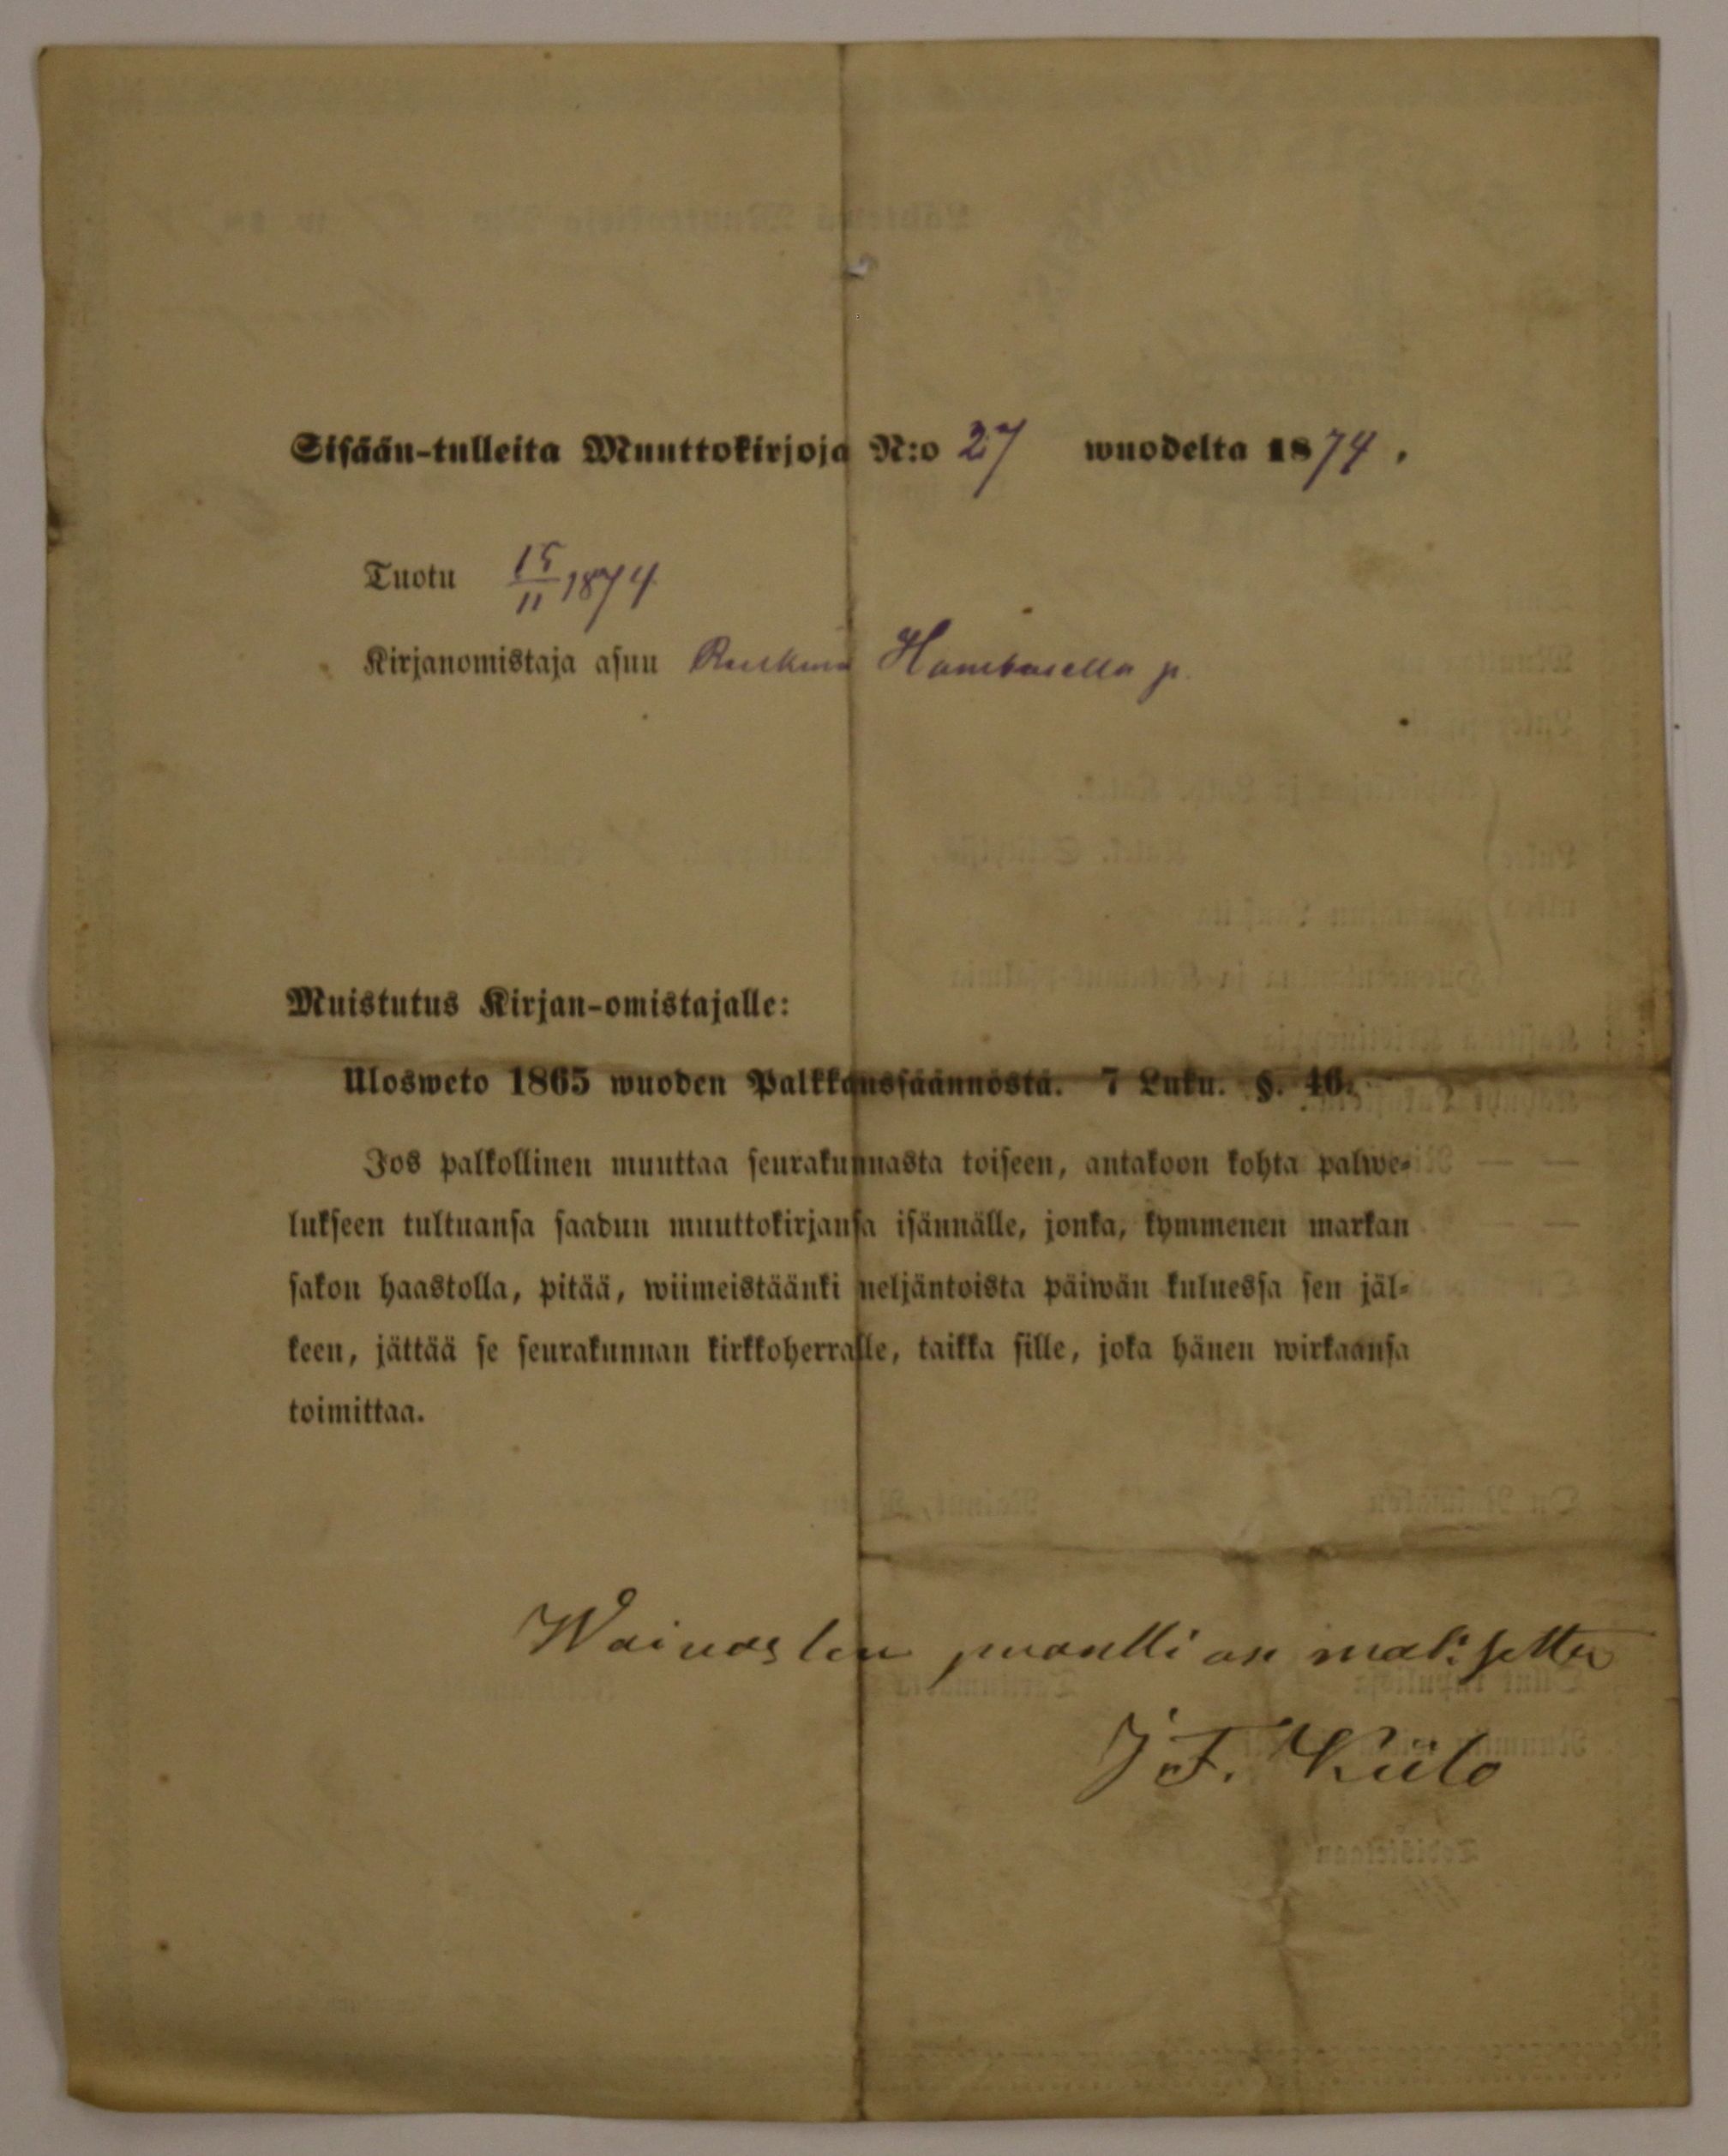 Sisään-tulleita Muuttokirjoja N:o 27 wuodelta 1874.
Tuotu 15/11 1874
Kirjanomistaja asuu
Muistutus Kirjan-omistajalle:
Ulosweto 1865 wuoden Palkkaussäännöstä. 7 Luku. §. 46.
Jos palkollinen muuttaa seurakunnasta toiseen, antakoon kohta palwe-
lukseen tultuansa saadun muuttokirjansa isännälle, jonka, kymmenen markan
sakon haastolla, pitää, wiimeistäänki neljäntoista päiwän kuluessa sen jäl-
keen, jättää se seurakunnan kirkkoherralle, taikka sille, joka hänen wirkaansa
toimittaa.
Waivasten on maksettu
J. F. Kiilo